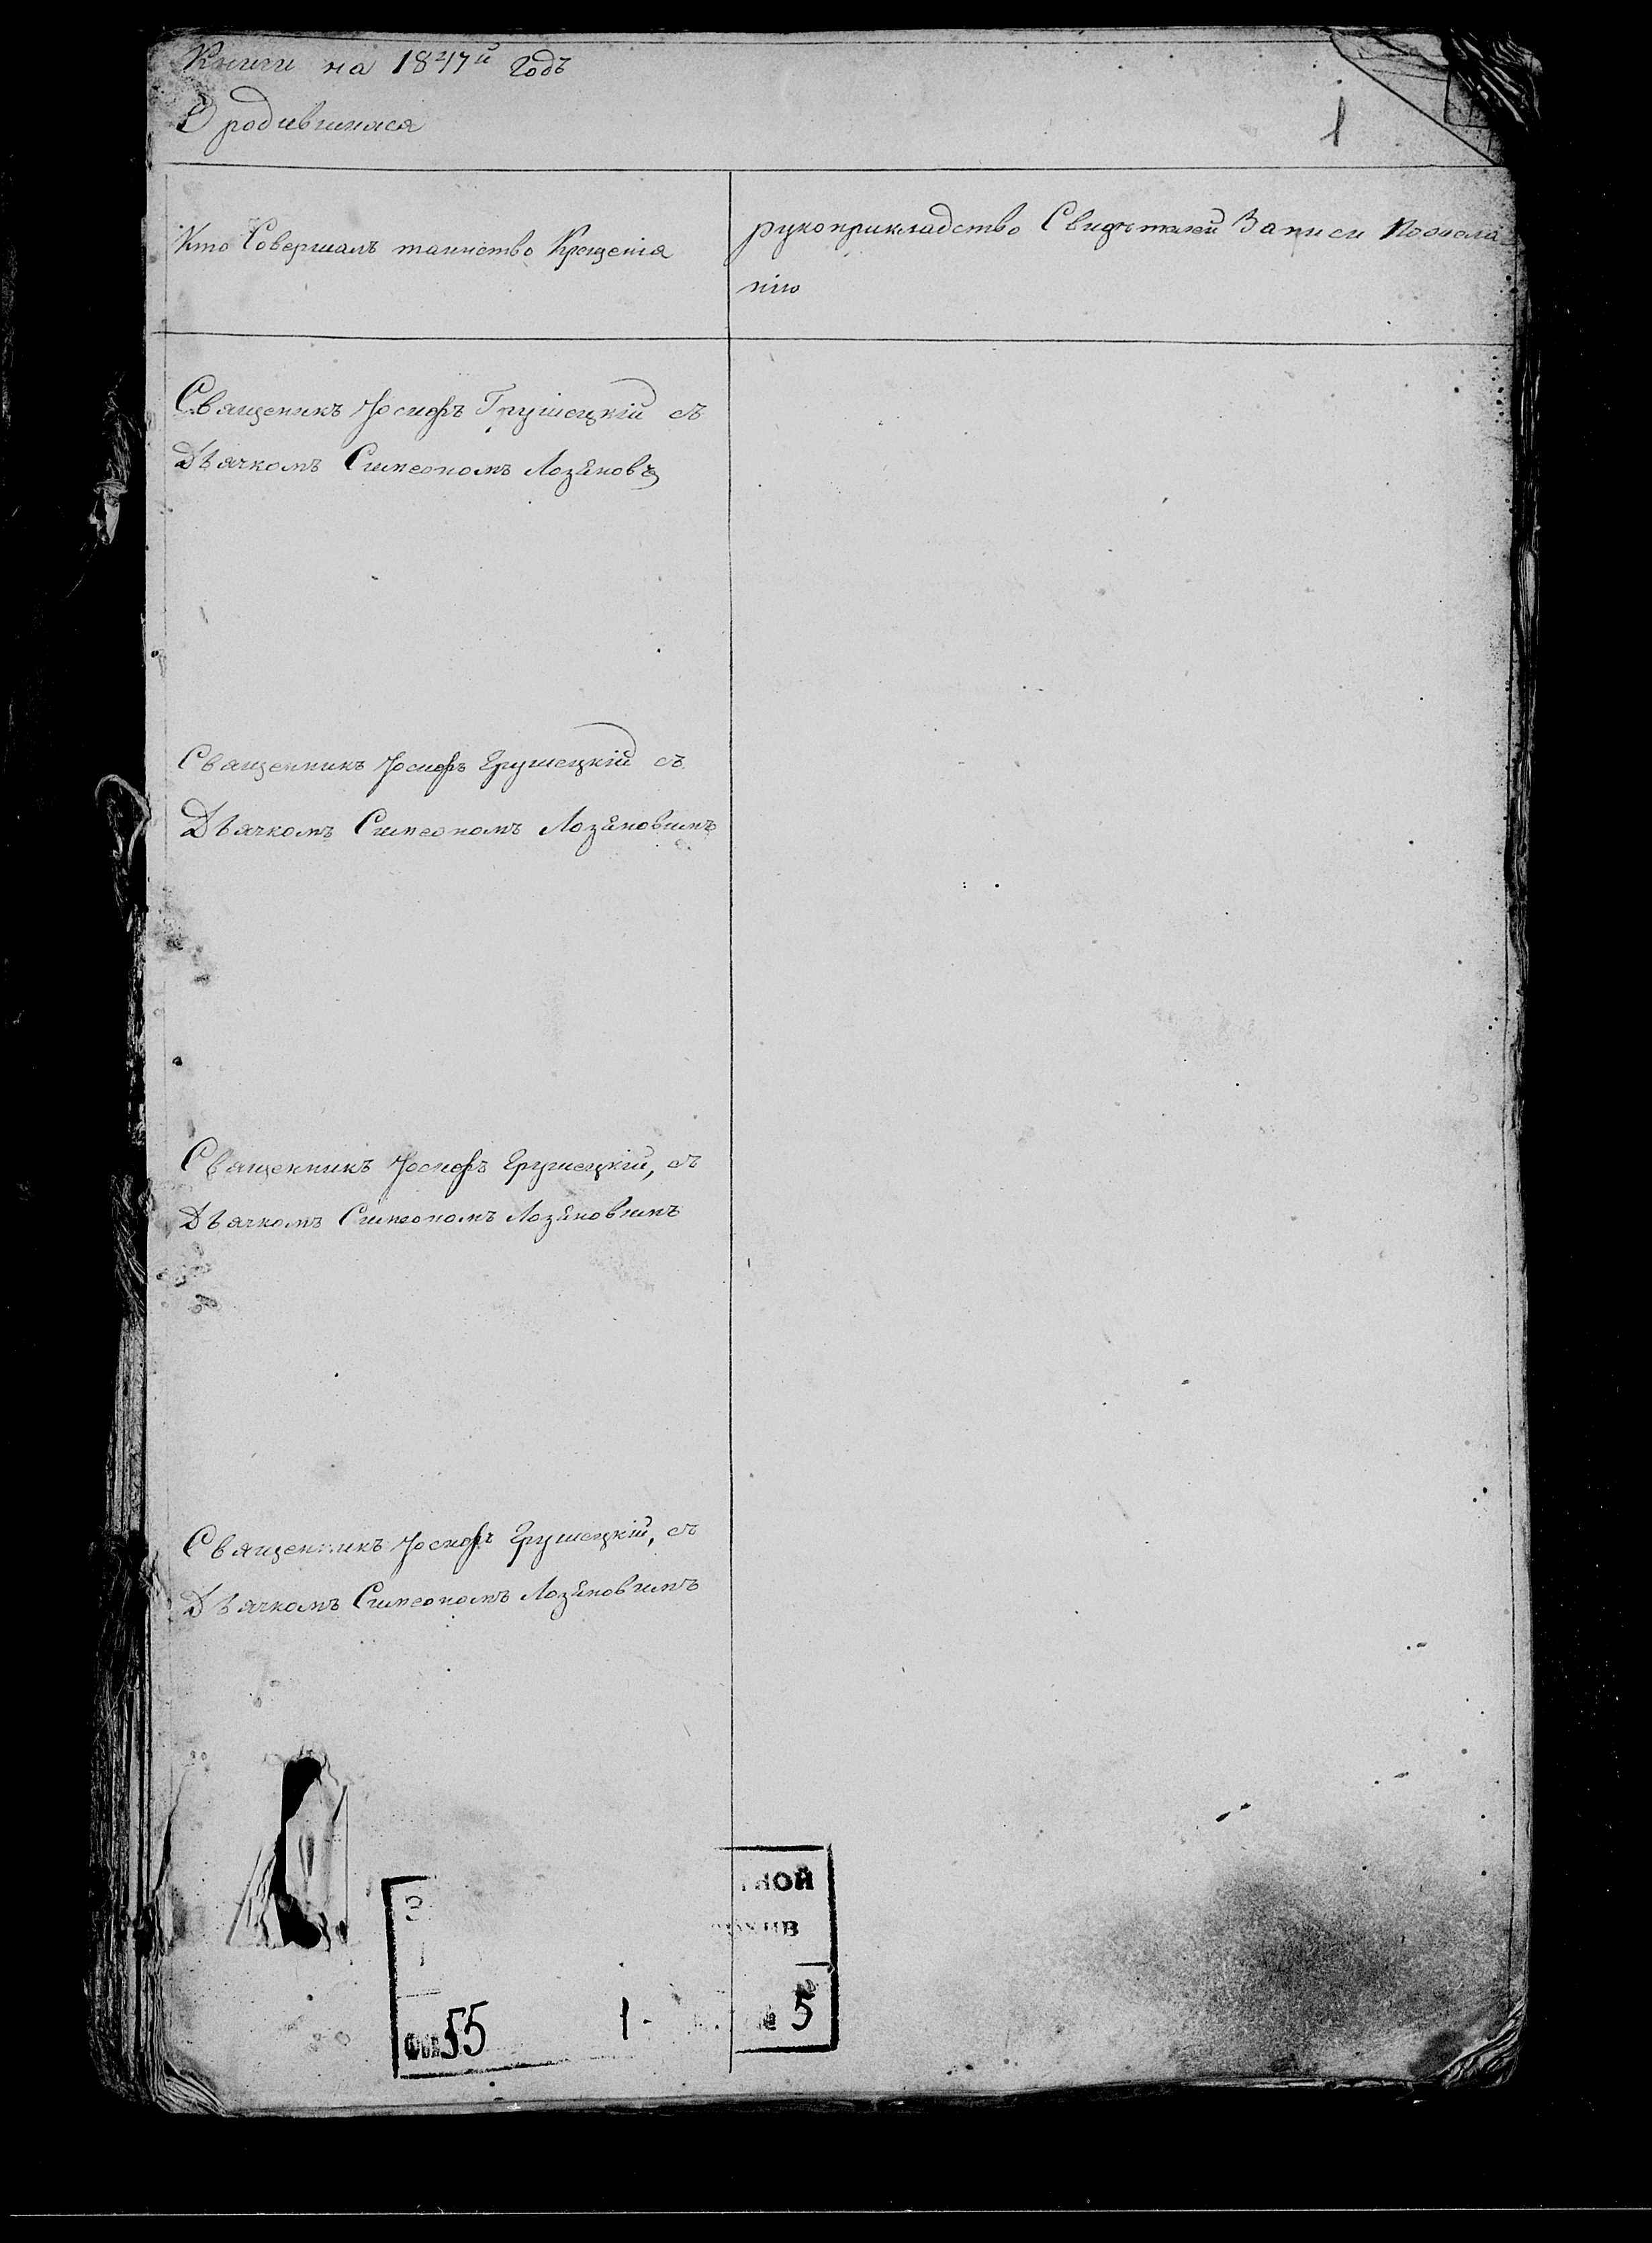 Книги на 1847й Годъ
О родившихся
1
Кто Совершалъ таинство Крещенія
рукоприкладство Свидѣтелей Записи По жела
нію
Священикъ Іосифъ Грушецкій съ
Дьячкомъ Симеономъ Лозяновъ
Священникъ Іосифъ Грушецкій съ
Дьячкомъ Симеономъ Лозяновимъ
Священникъ Іосифъ Грушецкій, съ
Дьячкомъ Симеономъ Лозяновимъ
Священникъ Іосифъ Грушецкій, съ
Дьячкомъ Симеономъ Лозяновимъ
НОЙ
ХИВ
55 1. № 5